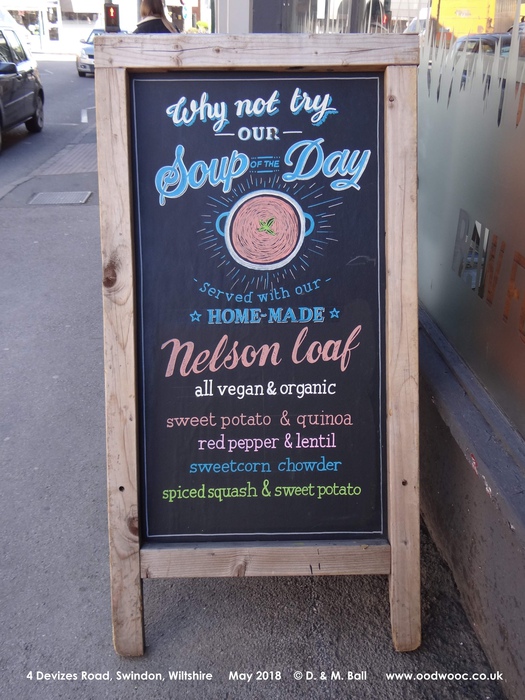 Why not try
OUR
Soup OF THE Day
- served with our -
☆ HOME-MADE ☆
Nelson loaf
all vegan & organic
sweet potato & quinoa
red pepper & lentil
sweetcorn chowder
spiced squash & sweet potato
4 Devizes Road, Swindon, Wiltshire May 2018 © D. & M. Ball www.oodwooc.co.uk